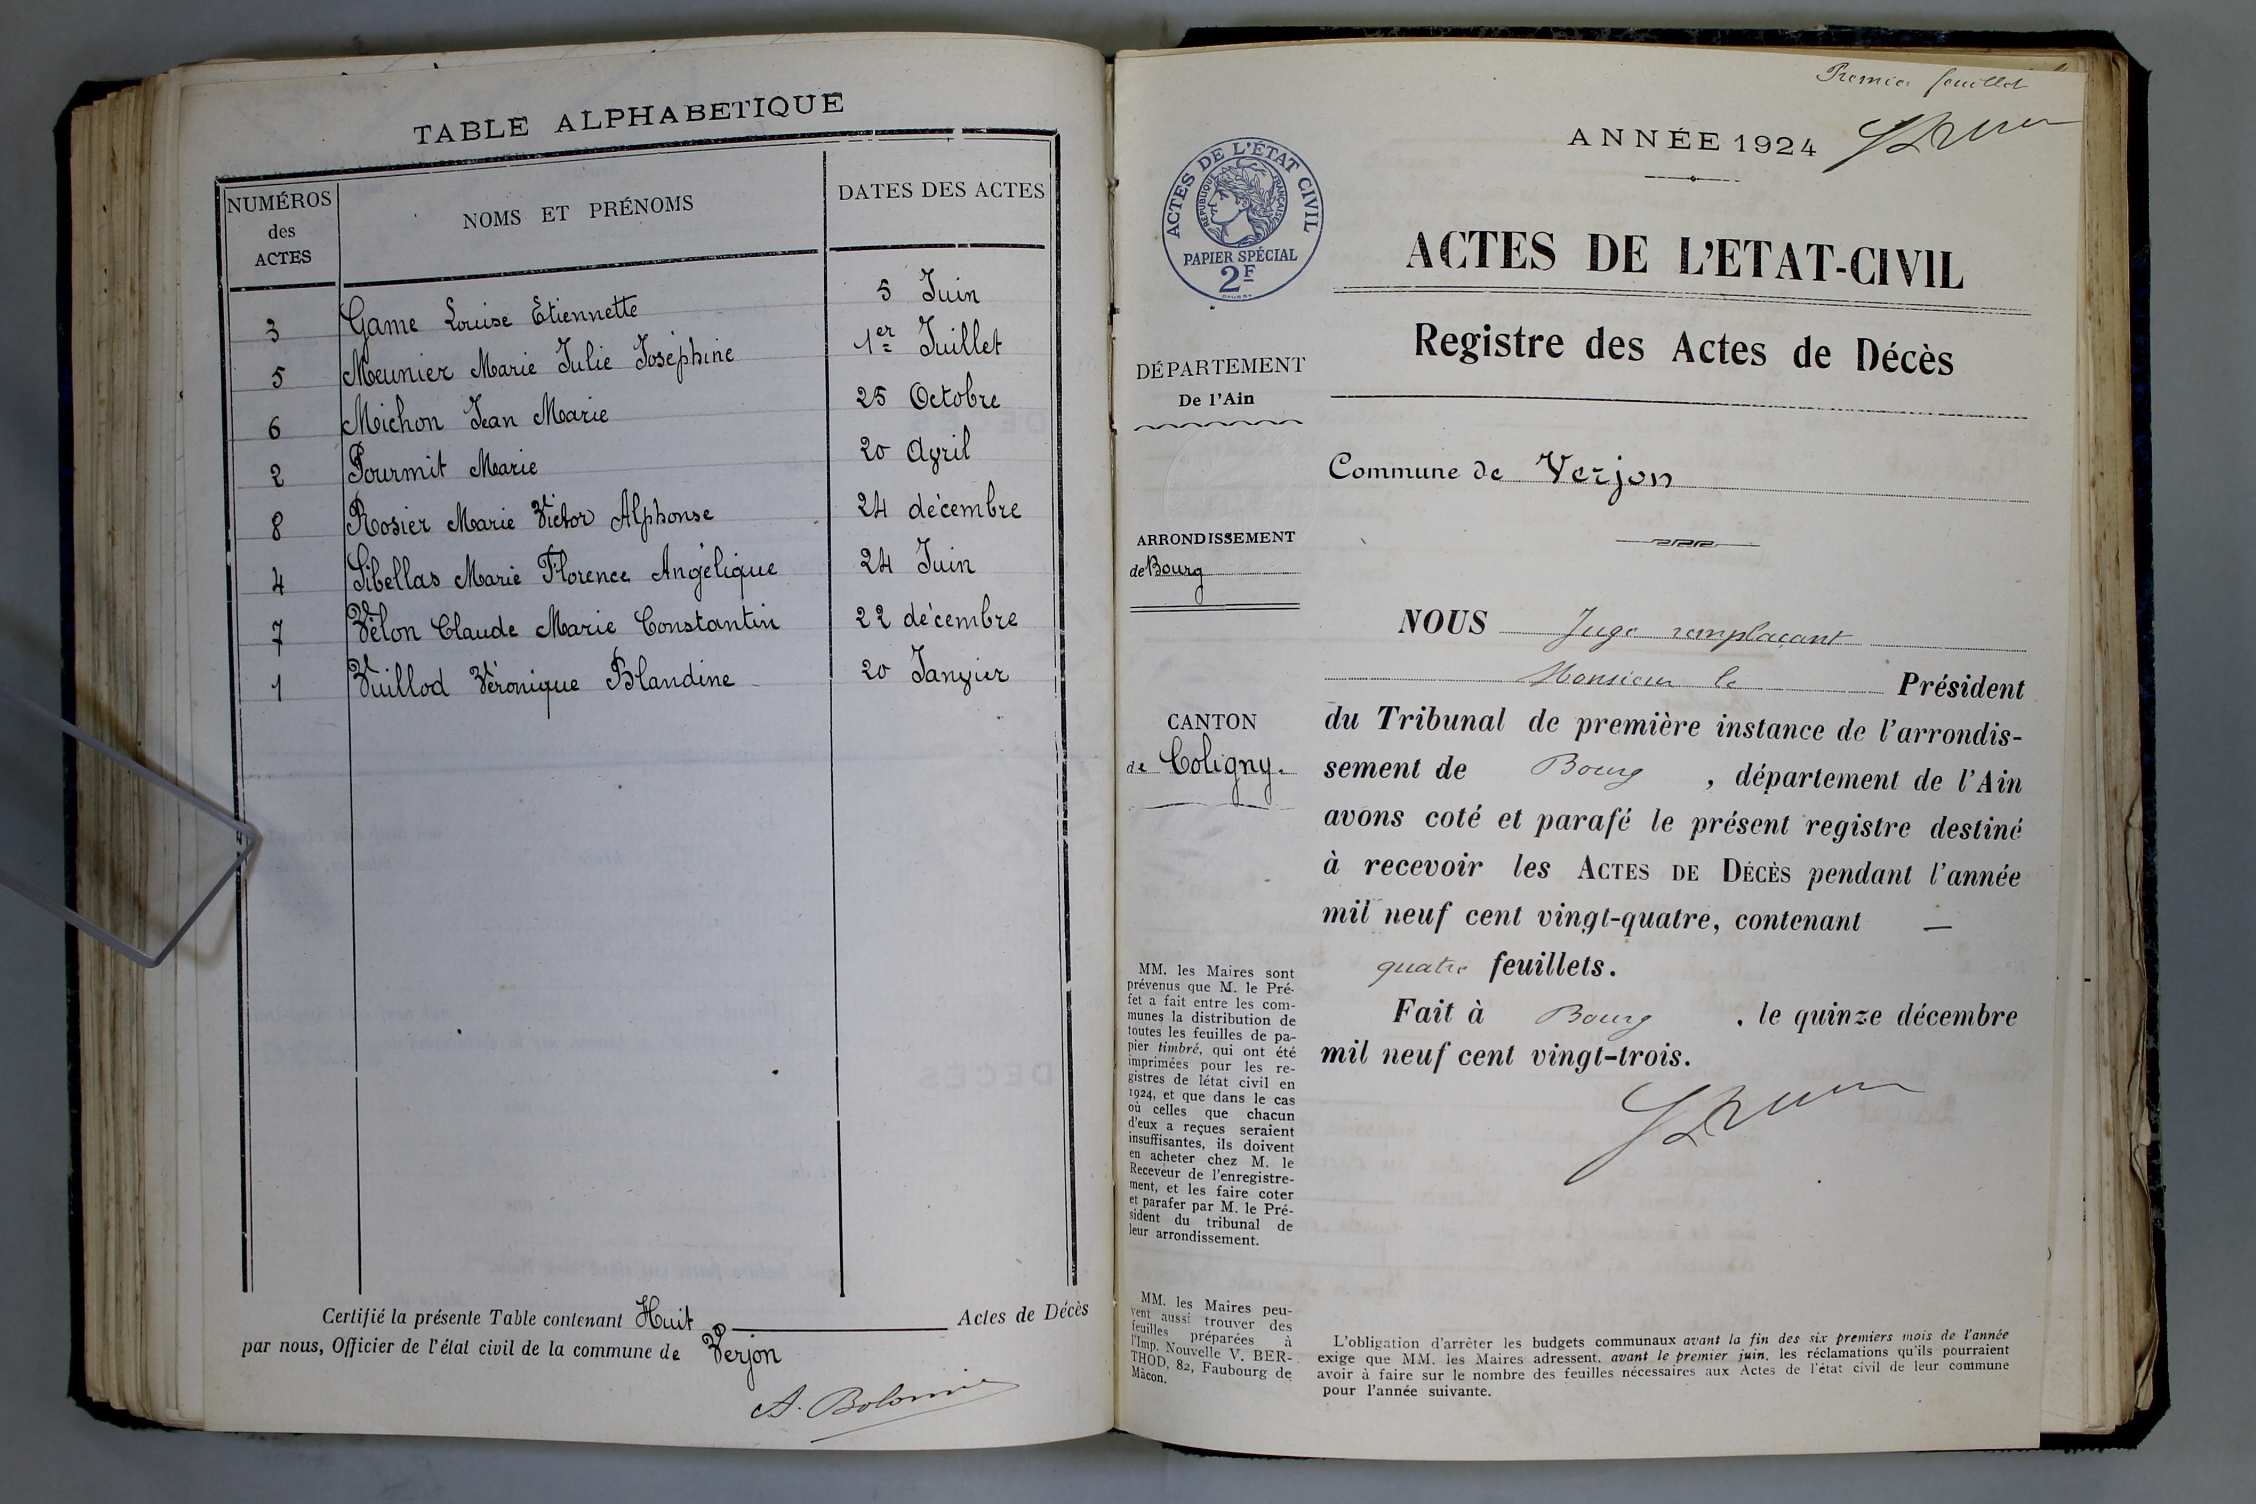 TABLE ALPHABETIQUE
NUMÉROS des ACTES NOMS ET PRÉNOMS DATES DES ACTES
3 Game Louise Etiennette 5 Juin
5 Meunier Marie Julie Joséphine 1er Juillet
6 Michon Jean Marie 25 Octobre
2 Pourmit Marie 20 Avril
8 Rosier Marie Victor Alphonse 24 décembre
4 Sibellas Marie Florence Angélique 24 Juin
7 Vélon Claude Marie Constantin 22 décembre
1 Vuillod Véronique Blandine 20 Janvier
Certifié la présente Table contenant Huit Actes de Décès
par nous, Officier de l'état civil de la commune de Verjon
Premier feuillet
ANNÉE 1924
ACTES DE L'ÉTAT CIVIL
RÉPUBLIQUE FRANÇAISE
PAPIER SPÉCIAL
2F
ACTES DE L'ETAT-CIVIL
Registre des Actes de Décès
DÉPARTEMENT
De l'Ain
Commune de Verjon
ARRONDISSEMENT
de Bourg
CANTON
de Coligny.
NOUS Juge remplaçant
Monsieur le Président
du Tribunal de première instance de l'arrondis-
sement de Bourg , département de l'Ain
avons coté et parafé le présent registre destiné
à recevoir les ACTES DE DÉCÈS pendant l'année
mil neuf cent vingt-quatre, contenant —
quatre feuillets.
Fait à Bourg , le quinze décembre
mil neuf cent vingt-trois.
MM. les Maires sont
prévenus que M. le Pré-
fet a fait entre les com-
munes la distribution de
toutes les feuilles de pa-
pier timbré, qui ont été
imprimées pour les re-
gistres de létat civil en
1924, et que dans le cas
où celles que chacun
d'eux a reçues seraient
insuffisantes, ils doivent
en acheter chez M. le
Receveur de l'enregistre-
ment, et les faire coter
et parafer par M. le Pré-
sident du tribunal de
leur arrondissement.
MM. les Maires peu-
vent aussi trouver des
feuilles préparées à
l'Imp. Nouvelle V. BER-
THOD, 82, Faubourg de
Mâcon.
L'obligation d'arrêter les budgets communaux avant la fin des six premiers mois de l'année
exige que MM. les Maires adressent, avant le premier juin, les réclamations qu'ils pourraient
avoir à faire sur le nombre des feuilles nécessaires aux Actes de l'état civil de leur commune
pour l'année suivante.